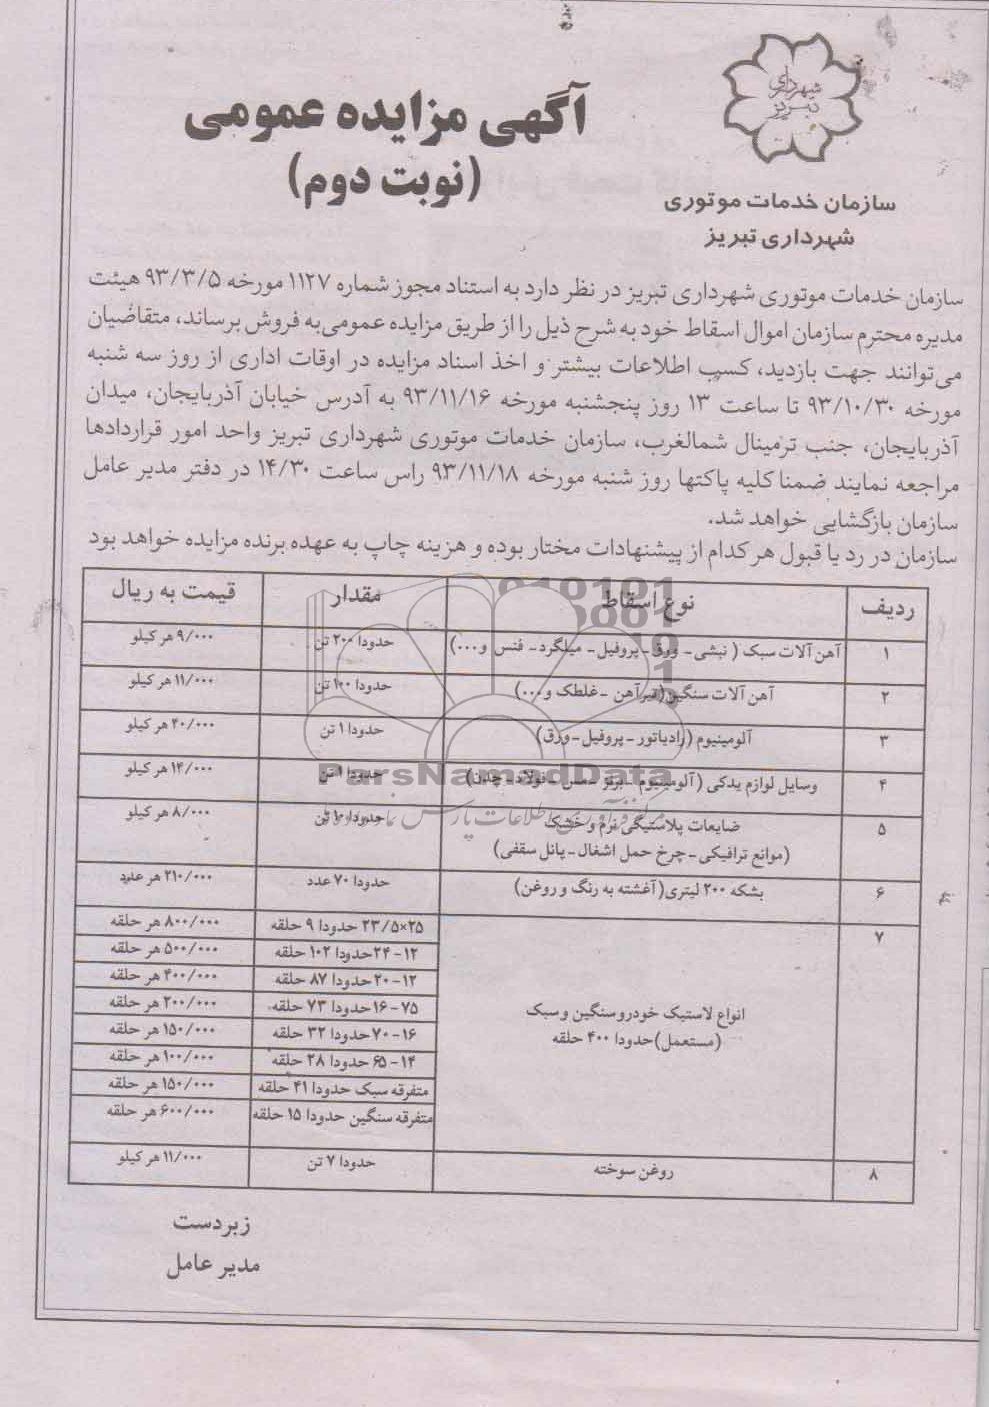 شهرداری
تبریز
سازمان خدمات موتوری
شهرداری تبریز
آگهی مزایده عمومی
(نوبت دوم)
سازمان خدمات موتوری شهرداری تبریز در نظر دارد به استناد مجوز شماره ۱۱۲۷ مورخه ۹۳/۳/۵ هیئت
مدیره محترم سازمان اموال اسقاط خود به شرح ذیل را از طریق مزایده عمومی به فروش برساند، متقاضیان
می‌توانند جهت بازدید، کسب اطلاعات بیشتر و اخذ اسناد مزایده در اوقات اداری از روز سه شنبه
مورخه ۹۳/۱۰/۳۰ تا ساعت ۱۳ روز پنجشنبه مورخه ۹۳/۱۱/۱۶ به آدرس خیابان آذربایجان، میدان
آذربایجان، جنب ترمینال شمالغرب، سازمان خدمات موتوری شهرداری تبریز واحد امور قراردادها
مراجعه نمایند ضمنا کلیه پاکتها روز شنبه مورخه ۹۳/۱۱/۱۸ راس ساعت ۱۴/۳۰ در دفتر مدیر عامل
سازمان بازگشایی خواهد شد.
سازمان در رد یا قبول هر کدام از پیشنهادات مختار بوده و هزینه چاپ به عهده برنده مزایده خواهد بود
ردیف نوع اسقاط مقدار قیمت به ریال
۱ آهن آلات سبک ( نبشی - ورق - پروفیل - میلگرد - فنس و...) حدودا ۲۰۰ تن ۹/۰۰۰ هر کیلو
۲ آهن آلات سنگین (تیرآهن - غلطک و...) حدودا ۱۰۰ تن ۱۱/۰۰۰ هر کیلو
۳ آلومینیوم (رادیاتور - پروفیل - ورق) حدودا ۱ تن ۴۰/۰۰۰ هر کیلو
۴ وسایل لوازم یدکی (آلومینیوم - برنز - مس - فولاد - چدن) حدودا ۱ تن ۱۴/۰۰۰ هر کیلو
۵ ضایعات پلاستیگی نرم و خشک حدودا ۱۰ تن ۸/۰۰۰ هر کیلو
(موانع ترافیکی - چرخ حمل اشغال - پانل سقفی)
۶ بشکه ۲۰۰ لیتری (آغشته به رنگ و روغن) حدودا ۷۰ عدد ۲۱۰/۰۰۰ هر عدد
۷ انواع لاستیک خودرو سنگین و سبک
(مستعمل) حدودا ۴۰۰ حلقه
۲۵×۲۳/۵ حدودا ۹ حلقه ۸۰۰/۰۰۰ هر حلقه
۱۲-۲۴ حدودا ۱۰۲ حلقه ۵۰۰/۰۰۰ هر حلقه
۱۲-۲۰ حدودا ۸۷ حلقه ۴۰۰/۰۰۰ هر حلقه
۷۵-۱۶ حدودا ۷۳ حلقه ۲۰۰/۰۰۰ هر حلقه
۱۶-۷۰ حدودا ۳۲ حلقه ۱۵۰/۰۰۰ هر حلقه
۱۴-۶۵ حدودا ۲۸ حلقه ۱۰۰/۰۰۰ هر حلقه
متفرقه سبک حدودا ۴۱ حلقه ۱۵۰/۰۰۰ هر حلقه
متفرقه سنگین حدودا ۱۵ حلقه ۶۰۰/۰۰۰ هر حلقه
۸ روغن سوخته حدودا ۷ تن ۱۱/۰۰۰ هر کیلو
زبردست
مدیر عامل
ParsNamadData